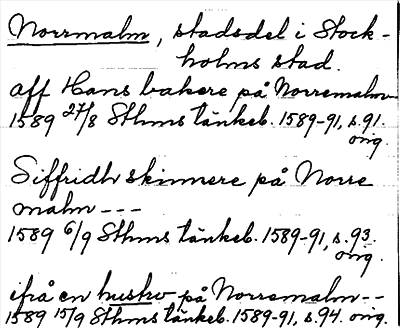 Norrmalm, stadsdel i Stock-
holms stad.
aff Hans bakere på Norremalm
1589 27/8 Sthms tänkeb. 1589-91, s. 91.
orig.
Siffridh skinnere på Norre
malm ---
1589 6/9 Sthms tänkeb. 1589-91, s. 93.
orig.
ifrå en hustro på Norremalm--
1589 15/9 Sthms tänkeb. 1589-91, s. 94. orig.